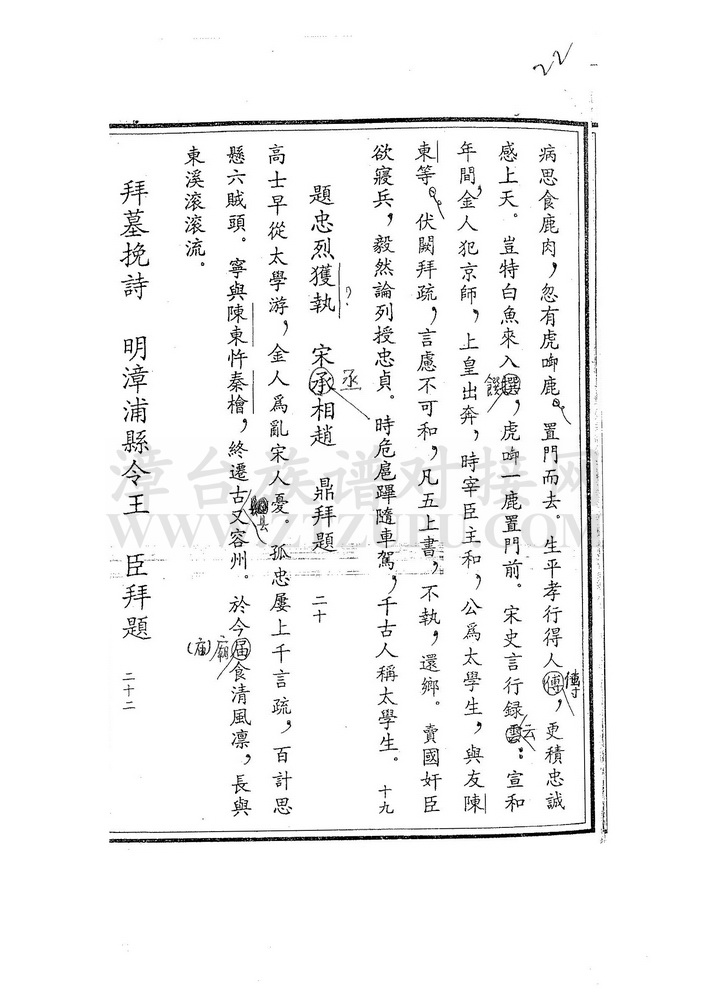 22
病思食鹿肉，忽有虎啣鹿。置門而去。生平孝行得人傅，更積忠誠
傳
感上天。豈特白魚來入選，虎啣一鹿置門前。宋史言行録雲：宣和
饌
云
年間，金人犯京師，上皇出奔，時宰臣主和，公爲太學生，與友陳
東等。伏闕拜疏，言慮不可和，凡五上書，不執，還鄉。賣國奸臣
欲寢兵，毅然論列授忠貞。時危扈蹕隨車駕，千古人稱太學生。 十九
題忠烈獲執 宋承相趙 鼎拜題 二十
？
丞
高士早從太學游，金人爲亂宋人憂。孤忠屢上千言疏，百計思
懸六賊頭。寧與陳東忤秦檜，終遷古又容州。於今届食清風凛，長與
縣
廟
(庙)
東溪滚滚流。
拜墓挽詩 明漳浦縣令王 臣拜題 二十二
漳台族谱对接网
WWW.ZTZUPU.COM